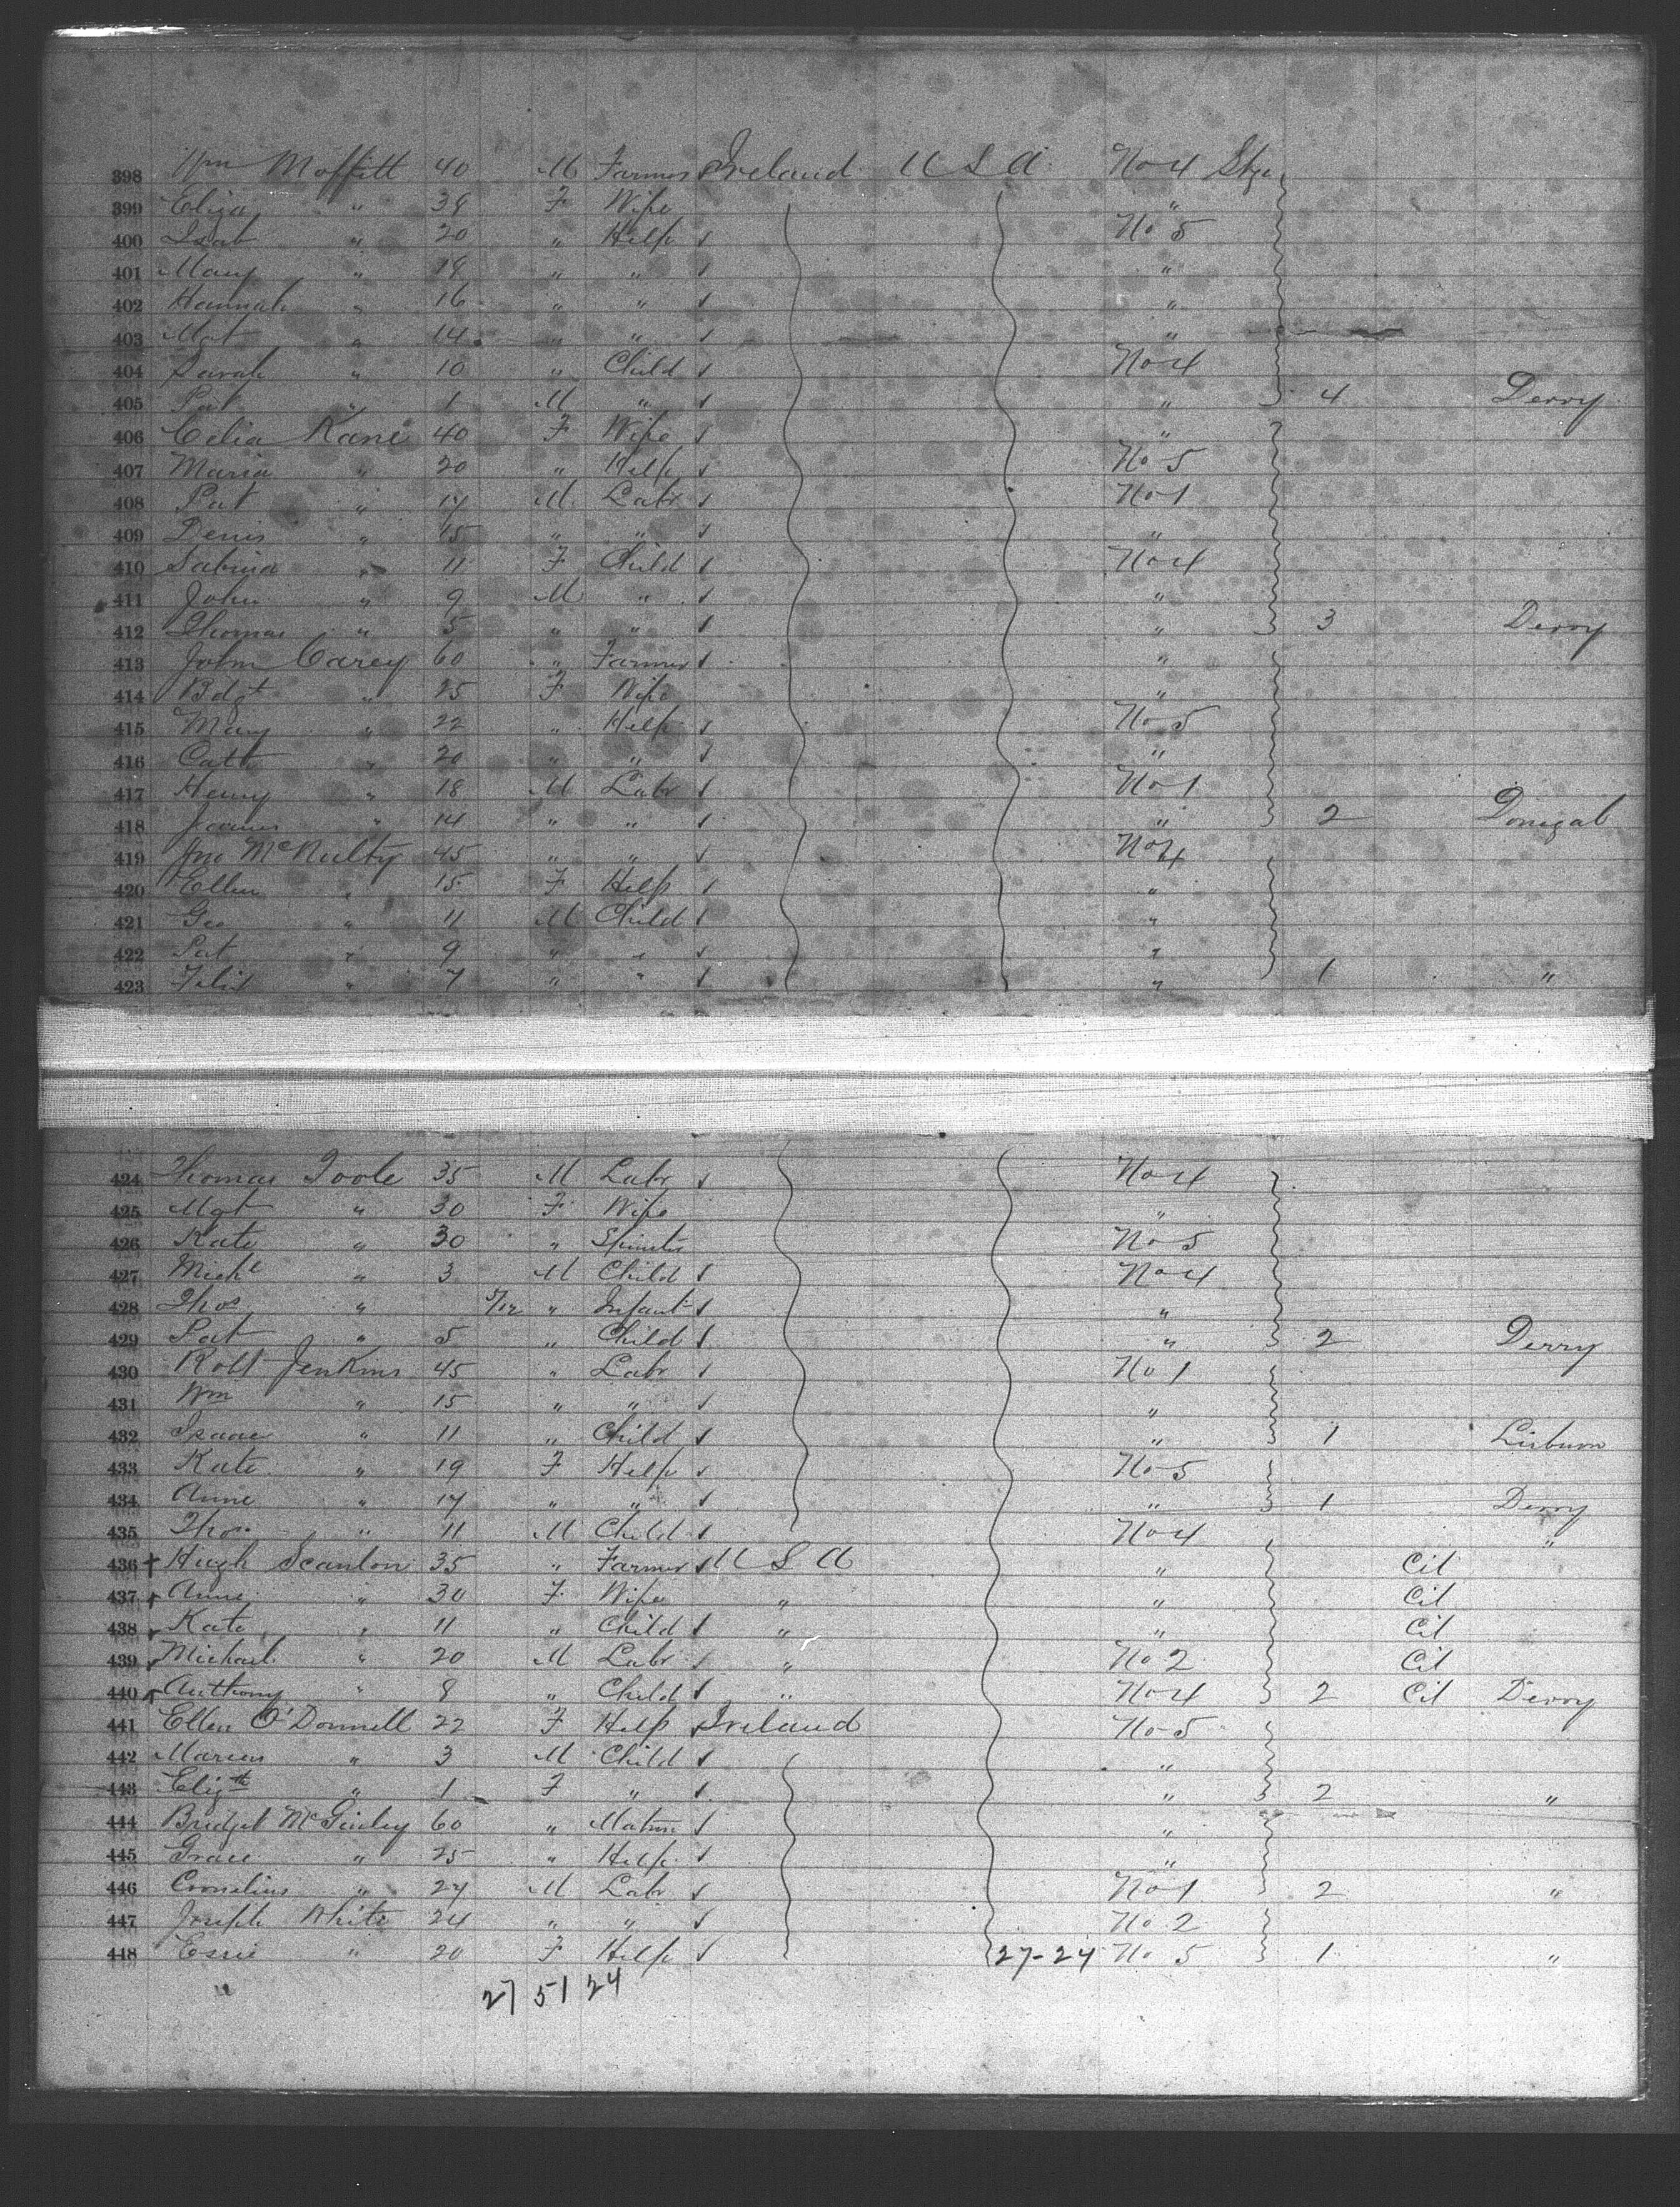 398 Wm Moffitt 40 M Farmer Ireland U S A No 4 Stge
399 Eliza " 38 F Wife "
400 Isab " 20 " Help No 5
401 Mary " 18 " " "
402 Hannah " 16 " " "
403 Mgt " 14 " " "
404 Sarah " 10 " Child No 4
405 Pat " 1 M " " 4 Derry
406 Celia Kane 40 F Wife "
407 Maria " 20 " Help No 5
408 Pat " 17 M Labr No 1
409 Denis " 15 " " "
410 Sabina " 11 F Child No 4
411 John " 9 M " "
412 Thomas " 5 " " " 3 Derry
413 John Carey 60 " Farmer "
414 Bdgt " 25 F Wife "
415 Mary " 22 " Help No 5
416 Cath " 20 " " "
417 Henry " 18 M Labr No 1
418 James " 14 " " " 2 Donegal
419 Jno McNulty 45 " " No 4
420 Ellen " 15 F Help "
421 Geo " 11 M Child "
422 Pat " 9 " " "
423 Felix " 7 " " " 1 "
424 Thomas Toole 35 M Labr No 4
425 Mgt " 30 F Wife "
426 Kate " 30 " Spinster No 5
427 Michl " 3 M Child No 4
428 Thos " 5/12 " Infant "
429 Pat " 5 " Child " 2 Derry
430 Robt Jenkins 45 " Labr No 1
431 Wm " 15 " " "
432 Isaac " 11 " Child " 1 Lisburn
433 Kate " 19 F Help No 5
434 Anne " 17 " " " 1 Derry
435 Thos " 11 M Child No 4 "
436 Hugh Scanlon 35 " Farmer U S A " Cit
437 Anne " 30 F Wife " " Cit
438 Kate " 11 " Child " " Cit
439 Michael " 20 M Labr " No 2 Cit
440 Anthony " 8 " Child " No 4 2 Cit Derry
441 Ellen O'Donnell 22 F Help Ireland No 5
442 Marcus " 3 M Child "
443 Elizth " 1 F " " 2 "
444 Bridget McGinley 60 " Matron "
445 Grace " 25 " Help "
446 Cornelius " 27 M Labr No 1 2 "
447 Joseph White 24 " " No 2
448 Essie " 20 F Help 27-24 No 5 1 "
27 51 24